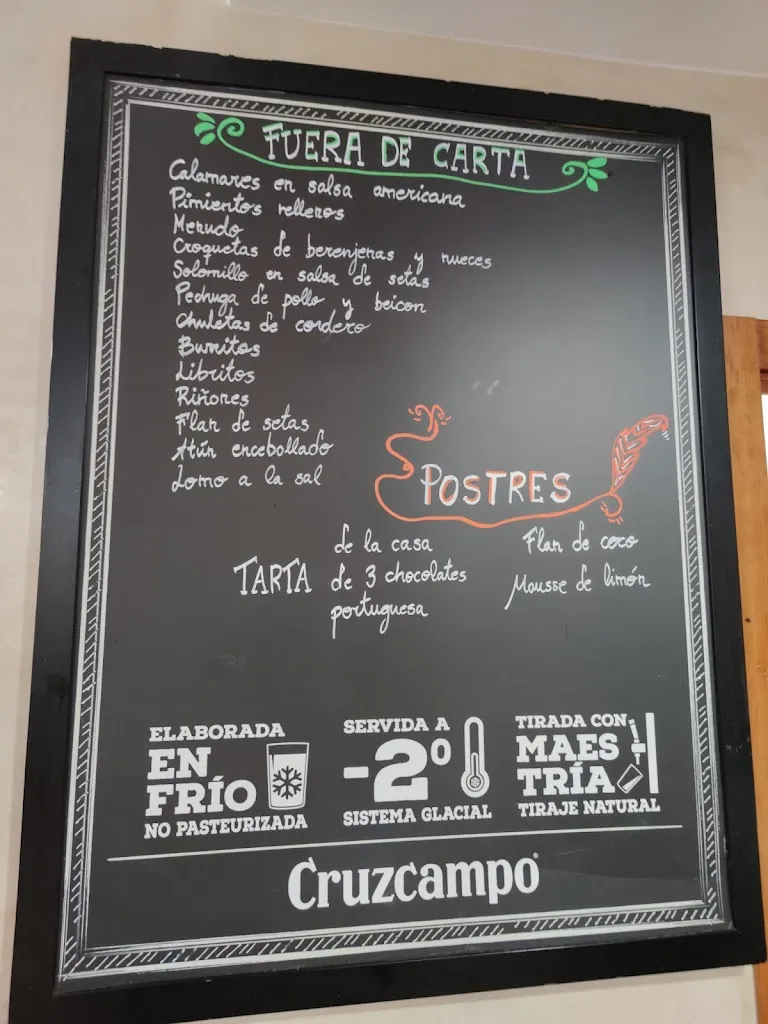 FUERA DE CARTA
Calamares en salsa americana
Pimientos rellenos
Menudo
Croquetas de berenjenas y nueces
Solomillo en salsa de setas
Pechuga de pollo y beicon
Chuletas de cordero
Burritos
Libritos
Riñones
Flan de setas
Atún encebollado
Lomo a la sal
POSTRES
TARTA
de la casa
de 3 chocolates
portuguesa
Flan de coco
Mousse de limón
ELABORADA
EN
FRÍO
NO PASTEURIZADA
SERVIDA A
-2º
SISTEMA GLACIAL
TIRADA CON
MAES
TRÍA
TIRAJE NATURAL
Cruzcampo